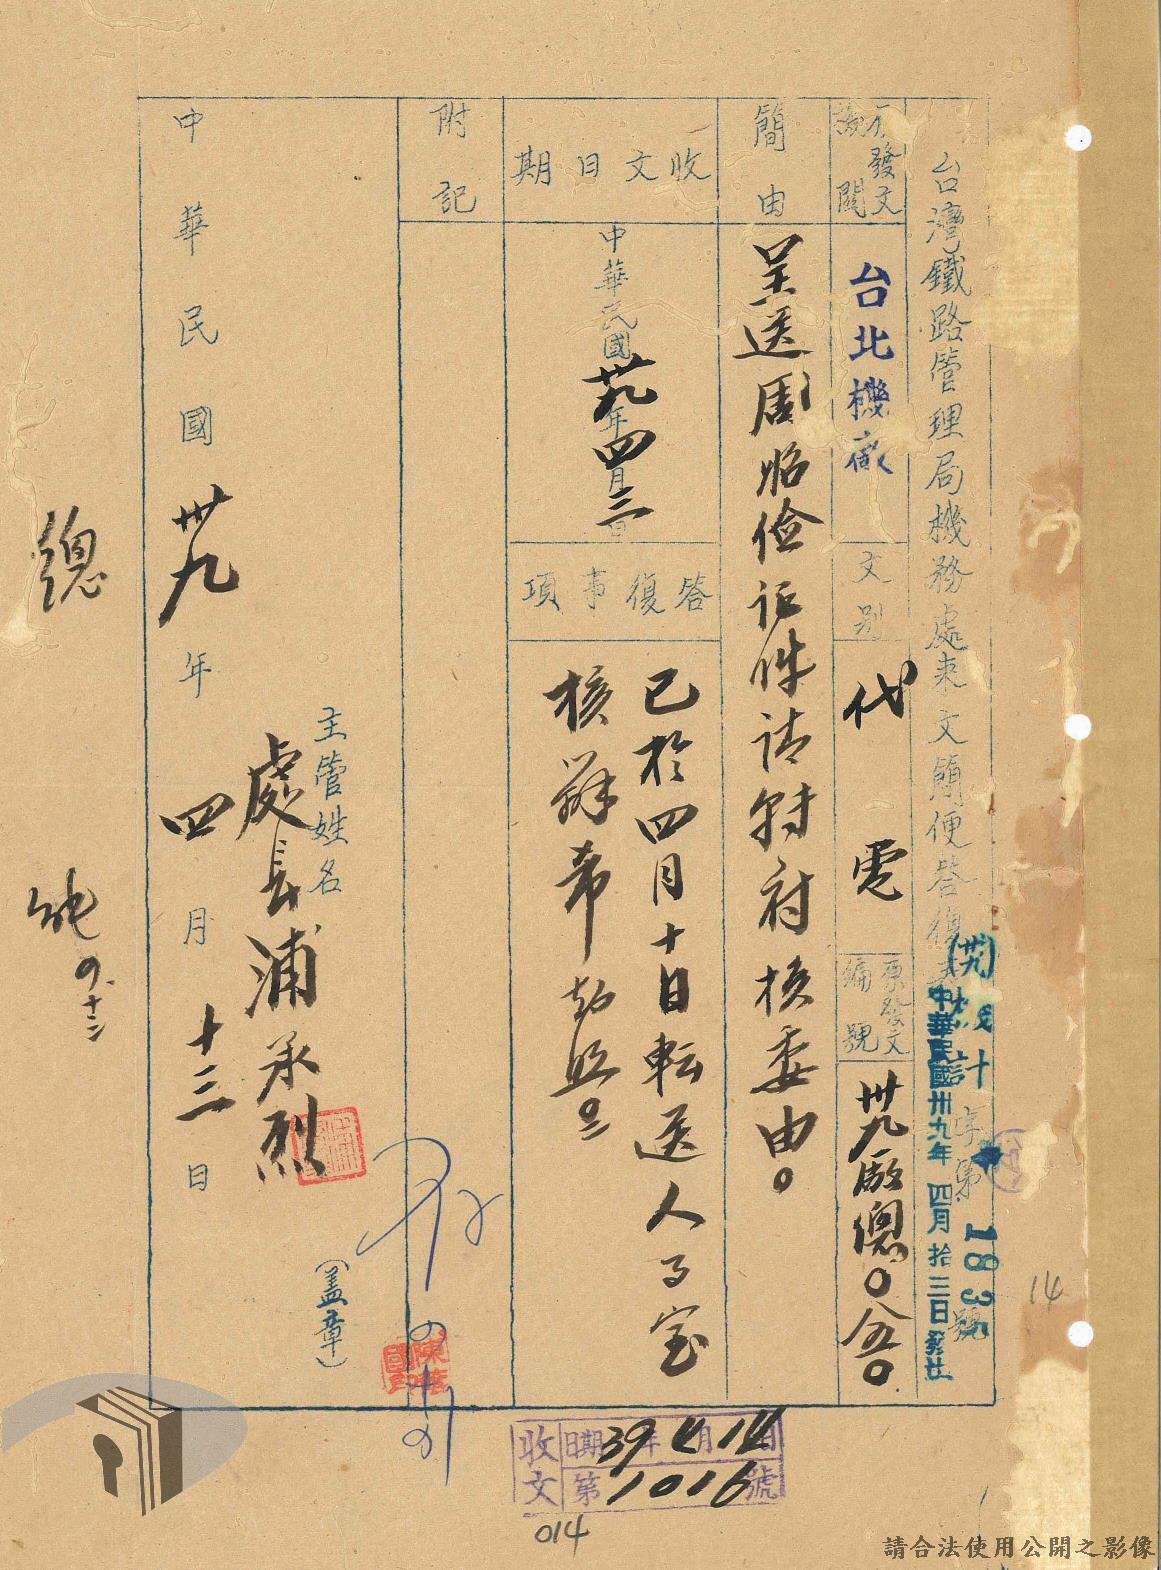 台灣鐵路管理局機務處來文簡便答復
(卅九)機計字第1835號
中華民國卅九年四月拾三日發出
發文機關
台北機廠
文別
代電
原發文編號
卅九廠總〇八五〇
簡由
呈送周昭儉证件请轉府核委由。
收文日期
中華民國卅九年四月三日
答復事項
已於四月十日転送人事室
核辦希知照
附記
主管姓名
處長浦承烈
(盖章)
中華民國卅九年四月十三日
總
收文
日期39年4月14日
第1016號
014
14
請合法使用公開之影像